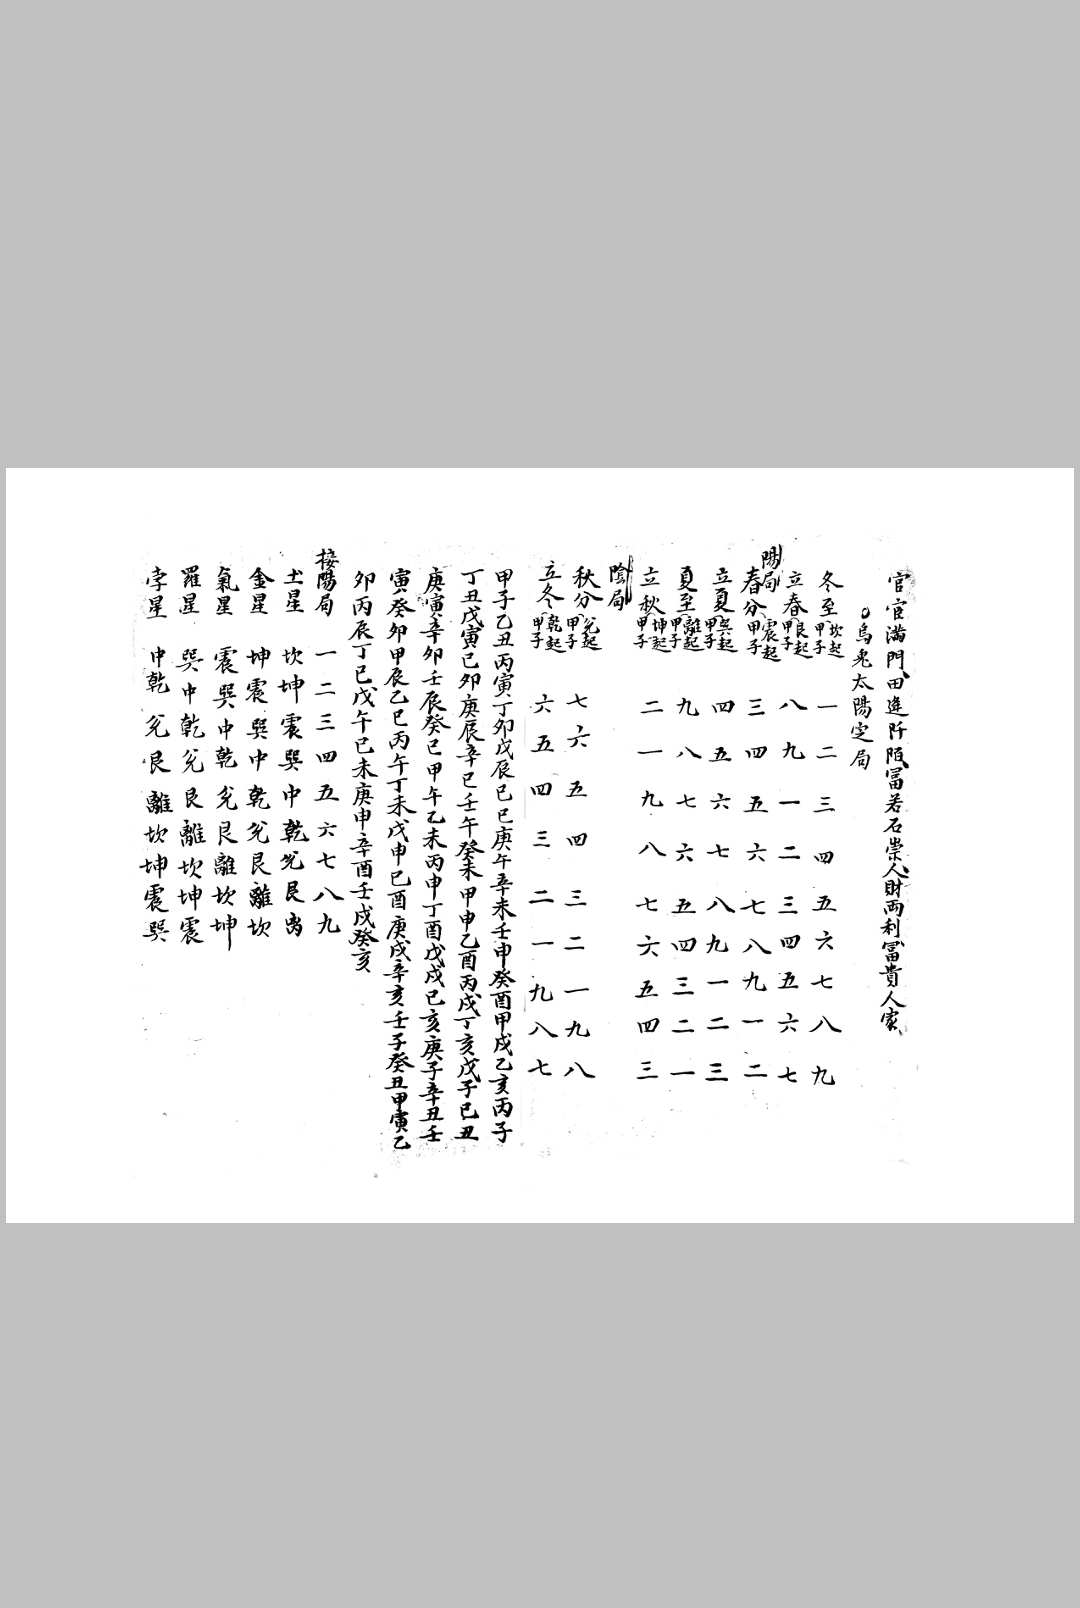 官官滿門田進阡陌富若石崇人財両利冨貴人家
烏兎太陽定局
冬至坎起甲子 一二三四五六七八九
立春艮起甲子 八九一二三四五六七
陽局
春分震起甲子 三四五六七八九一二
立夏巽起甲子 四五六七八九一二三
夏至離起甲子 九八七六五四三二一
立秋坤起甲子 二一九八七六五四三
陰局
秋分兌起甲子 七六五四三二一九八
立冬乾起甲子 六五四三二一九八七
甲子乙丑丙寅丁卯戊辰己巳庚午辛未壬申癸酉甲戌乙亥丙子
丁丑戊寅己卯庚辰辛巳壬午癸未甲申乙酉丙戌丁亥戊子己丑
庚寅辛卯壬辰癸巳甲午乙未丙申丁酉戊戌己亥庚子辛丑壬
寅癸卯甲辰乙巳丙午丁未戊申己酉庚戌辛亥壬子癸丑甲寅乙
卯丙辰丁巳戊午己未庚申辛酉壬戌癸亥
接陽局 一二三四五六七八九
土星 坎坤震巽中乾兌艮离
金星 坤震巽中乾兌艮離坎
氣星 震巽中乾兌艮離坎坤
羅星 巽中乾兌艮離坎坤震
孛星 中乾兌艮離坎坤震巽